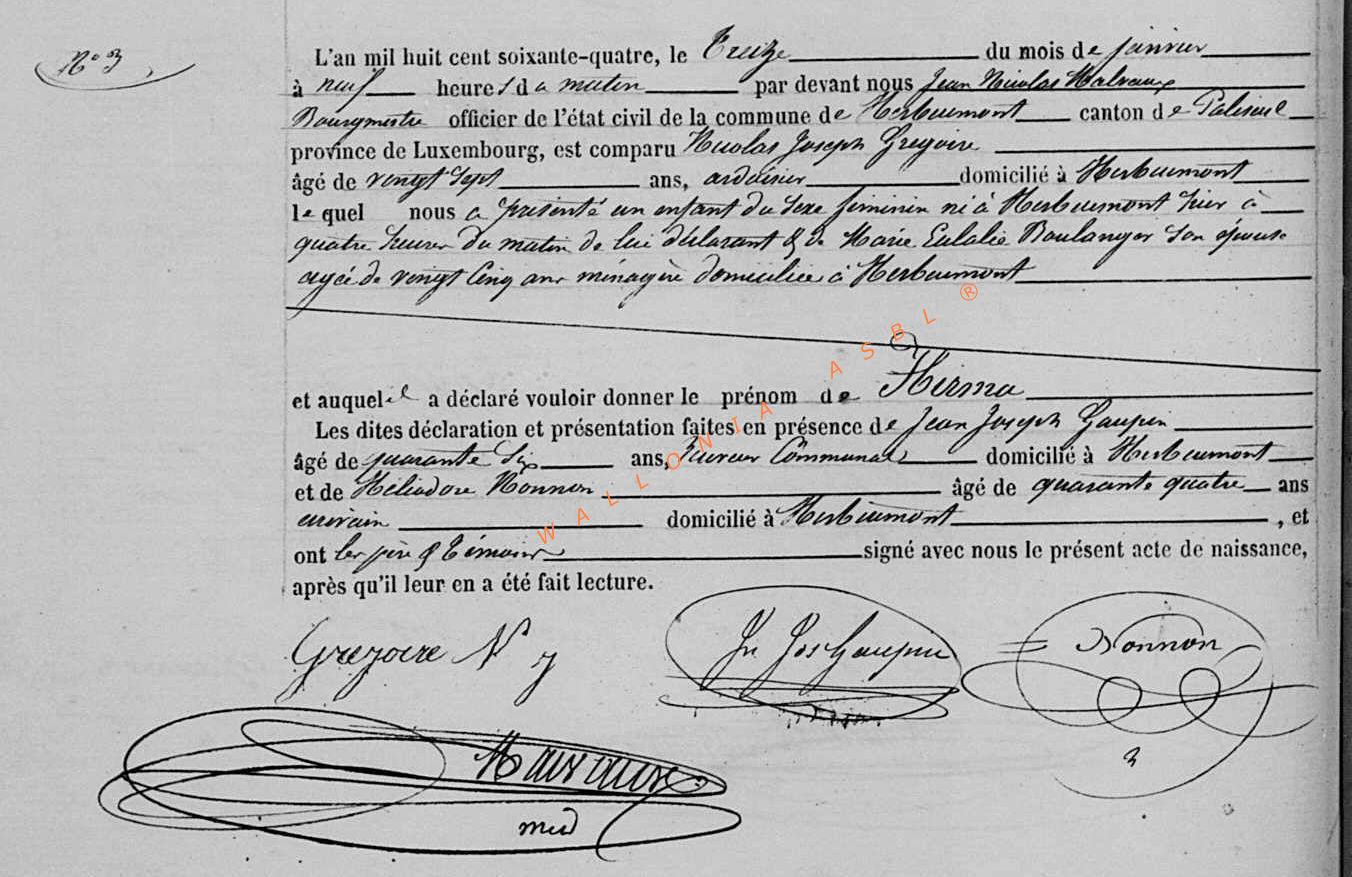 N° 3
L'an mil huit cent soixante-quatre, le Treize du mois de janvier
à neuf heures du matin par devant nous Jean Nicolas Malvaux
Bourgmestre officier de l'état civil de la commune de Herbeumont canton de Paliseul
province de Luxembourg, est comparu Nicolas Joseph Gregoire
âgé de vingt sept ans, ardoisier domicilié à Herbeumont
le quel nous a présenté un enfant du sexe féminin né à Herbeumont hier à
quatre heures du matin de lui déclarant & de Marie Eulalie Boulanger son épouse
agée de vingt cinq ans ménagère domiciliée à Herbeumont
et auquel il a déclaré vouloir donner le prénom de Hirma
Les dites déclaration et présentation faites en présence de Jean Joseph Gaupin
âgé de quarante six ans, Receveur Communal domicilié à Herbeumont
et de Héliodore Nonnon âgé de quarante quatre ans
écrivain domicilié à Herbeumont , et
ont les père & témoins signé avec nous le présent acte de naissance,
après qu'il leur en a été fait lecture.
Gregoire N J
Jn Jos Gaupin
Nonnon
Malvaux
WALLONIA ASBL ®